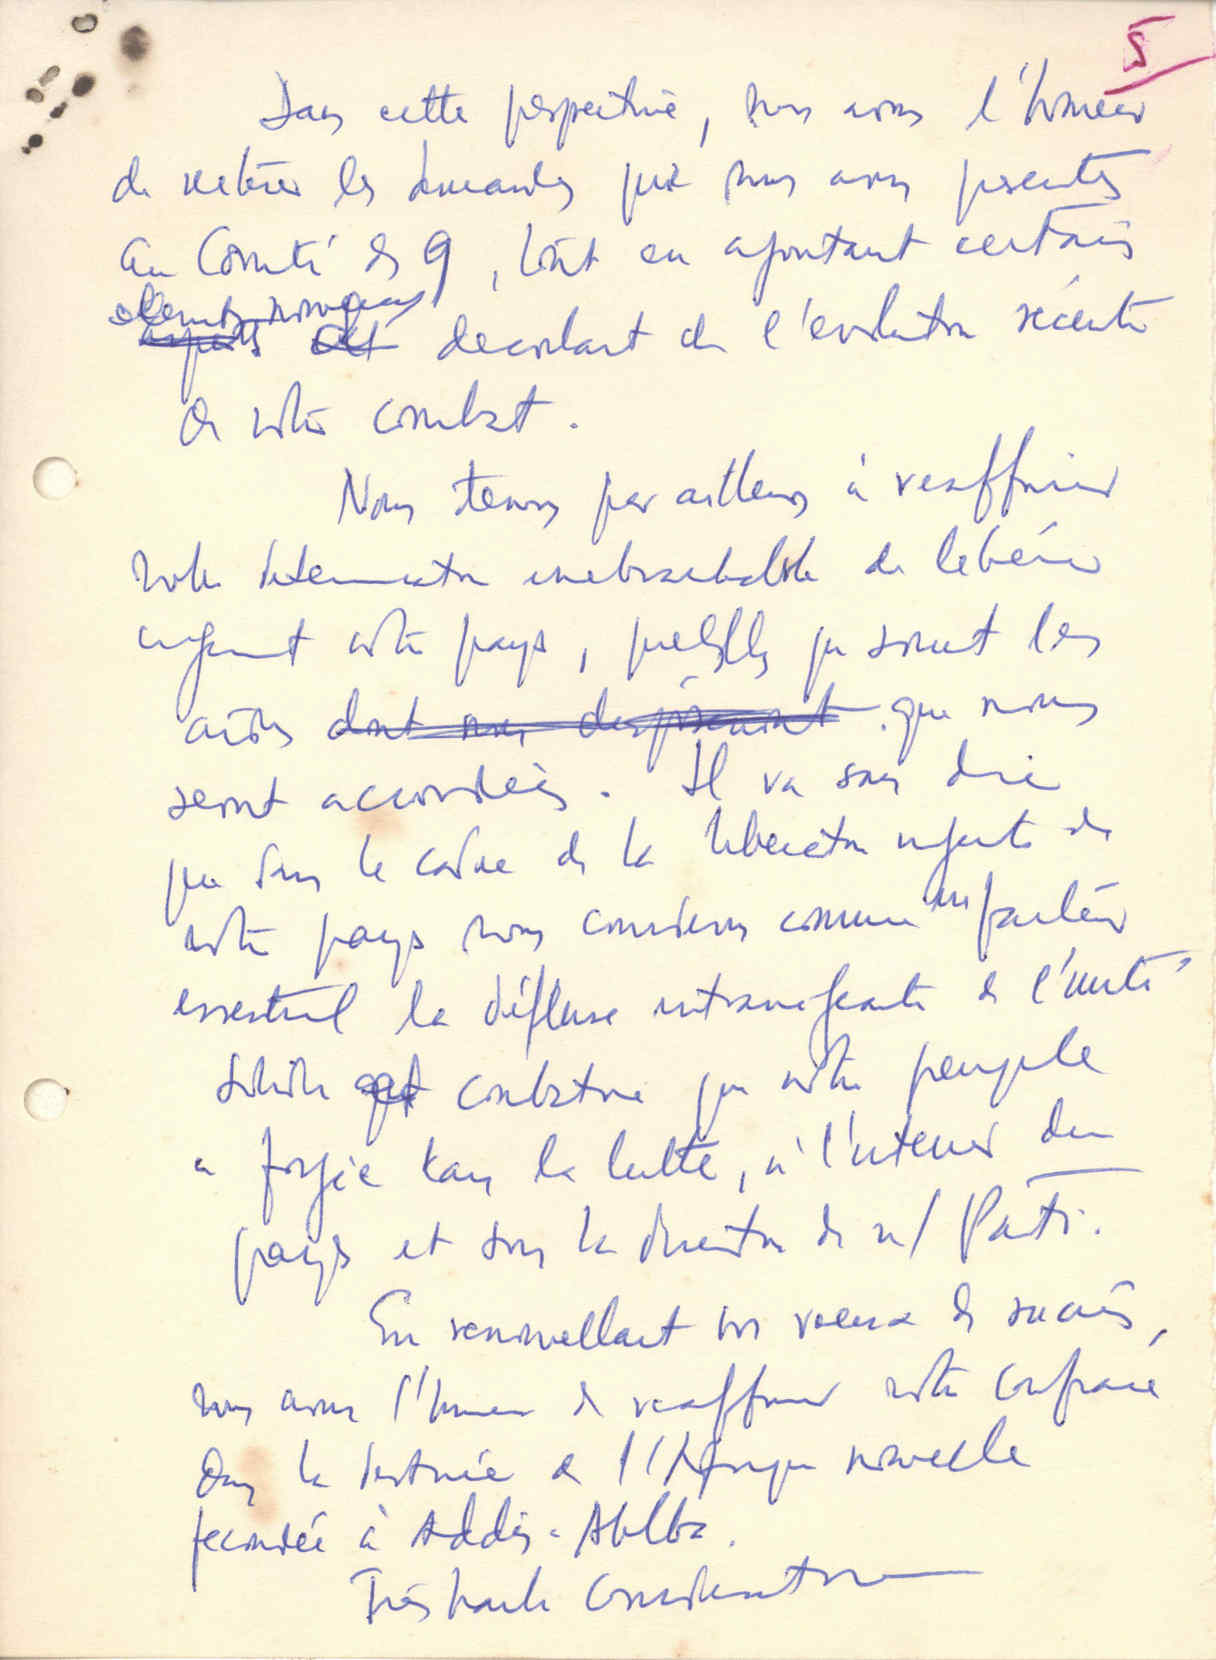 5
Dans cette perspective, nous avons l'honneur
de réitérer les demandes que nous avons présentés
au Comité des 9, tout en ajoutant certains
éléments nouveaux
aspects decoulant de l'evolution récente
de notre combat.
Nous tenons par ailleurs à reaffirmer
notre determination inebranlable de libérer
notre pays, quelles que soient les
aides dont nous disposeront que nous
seront accordées. Il va sans dire
que dans le cadre de la liberation urgente de
notre pays nous considerons comme un facteur
essentiel la défense intransigeante de l'unité
solide et combative que notre peuple
a forgée dans la lutte, à l'interieur du
pays et sous la direction de n/ Parti.
En renouvellant nos voeux de succès,
nous avons l'honneur de reaffirmer notre confiance
dans la destinée de l'Afrique nouvelle
fecondée à Addis-Abeba.
Très haute Consideration